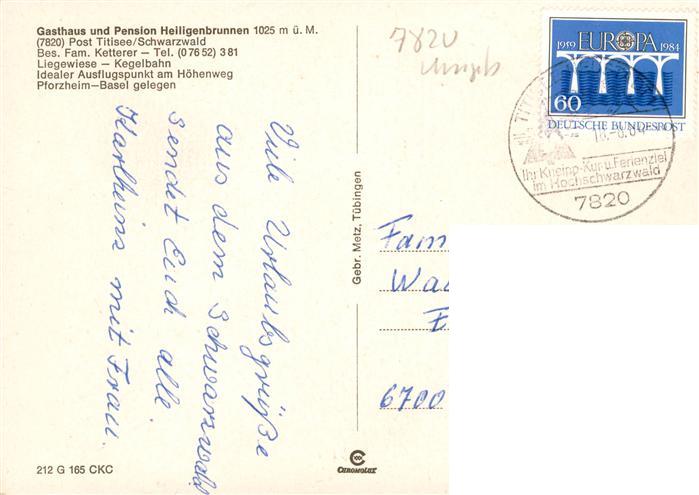 Gasthaus und Pension Heiligenbrunnen 1025 m ü. M.
(7820) Post Titisee/Schwarzwald
Bes. Fam. Ketterer – Tel. (0 76 52) 3 81
Liegewiese – Kegelbahn
Idealer Ausflugspunkt am Höhenweg
Pforzheim–Basel gelegen
Viele Urlaubsgrüße
aus dem Schwarzwald
sendet Euch alle
Karlheinz mit Frau.
Gebr. Metz, Tübingen
7820
EUROPA
1959 1984
60
DEUTSCHE BUNDESPOST
Ihr Kneipp-Kur u. Ferienziel
im Hochschwarzwald
7820
Fam
6700
212 G 165 CKC
CHROMOLUX